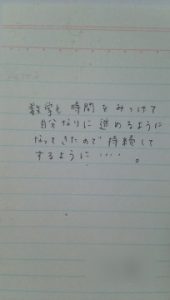 数学も時間をみつけて
自分なりに進めるように
なってきたので持続して
するように・・・・。